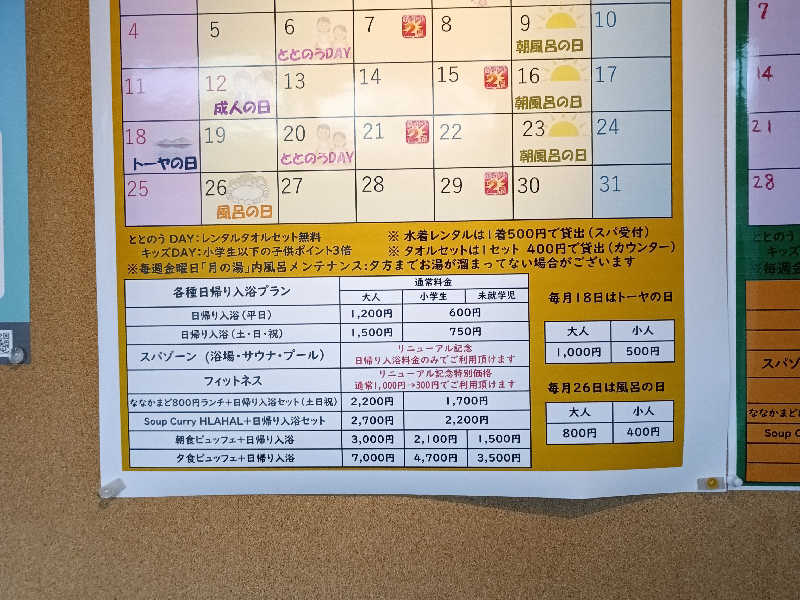 4 5 6 7 8 9 10
ととのうDAY 朝風呂の日
11 12 13 14 15 16 17
成人の日 朝風呂の日
18 19 20 21 22 23 24
トーヤの日 ととのうDAY 朝風呂の日
25 26 27 28 29 30 31
風呂の日
ととのうDAY:レンタルタオルセット無料 ※ 水着レンタルは1着500円で貸出(スパ受付)
キッズDAY:小学生以下の子供ポイント3倍 ※ タオルセットは1セット 400円で貸出(カウンター)
※毎週金曜日「月の湯」内風呂メンテナンス:夕方までお湯が溜まってない場合がございます
各種日帰り入浴プラン 通常料金
大人 小学生 未就学児
日帰り入浴(平日) 1,200円 600円
日帰り入浴(土・日・祝) 1,500円 750円
スパゾーン (浴場・サウナ・プール) リニューアル記念
日帰り入浴料金のみでご利用頂けます
フィットネス リニューアル記念特別価格
通常1,000円→300円でご利用頂けます
ななかまど800円ランチ+日帰り入浴セット(土日祝) 2,200円 1,700円
Soup Curry HLAHAL+日帰り入浴セット 2,700円 2,200円
朝食ビュッフェ+日帰り入浴 3,000円 2,100円 1,500円
夕食ビュッフェ+日帰り入浴 7,000円 4,700円 3,500円
毎月18日はトーヤの日
大人 小人
1,000円 500円
毎月26日は風呂の日
大人 小人
800円 400円
7
14
21
28
ととのう
キッズ
※毎週金
スパゾ
ななかまど8
Soup C